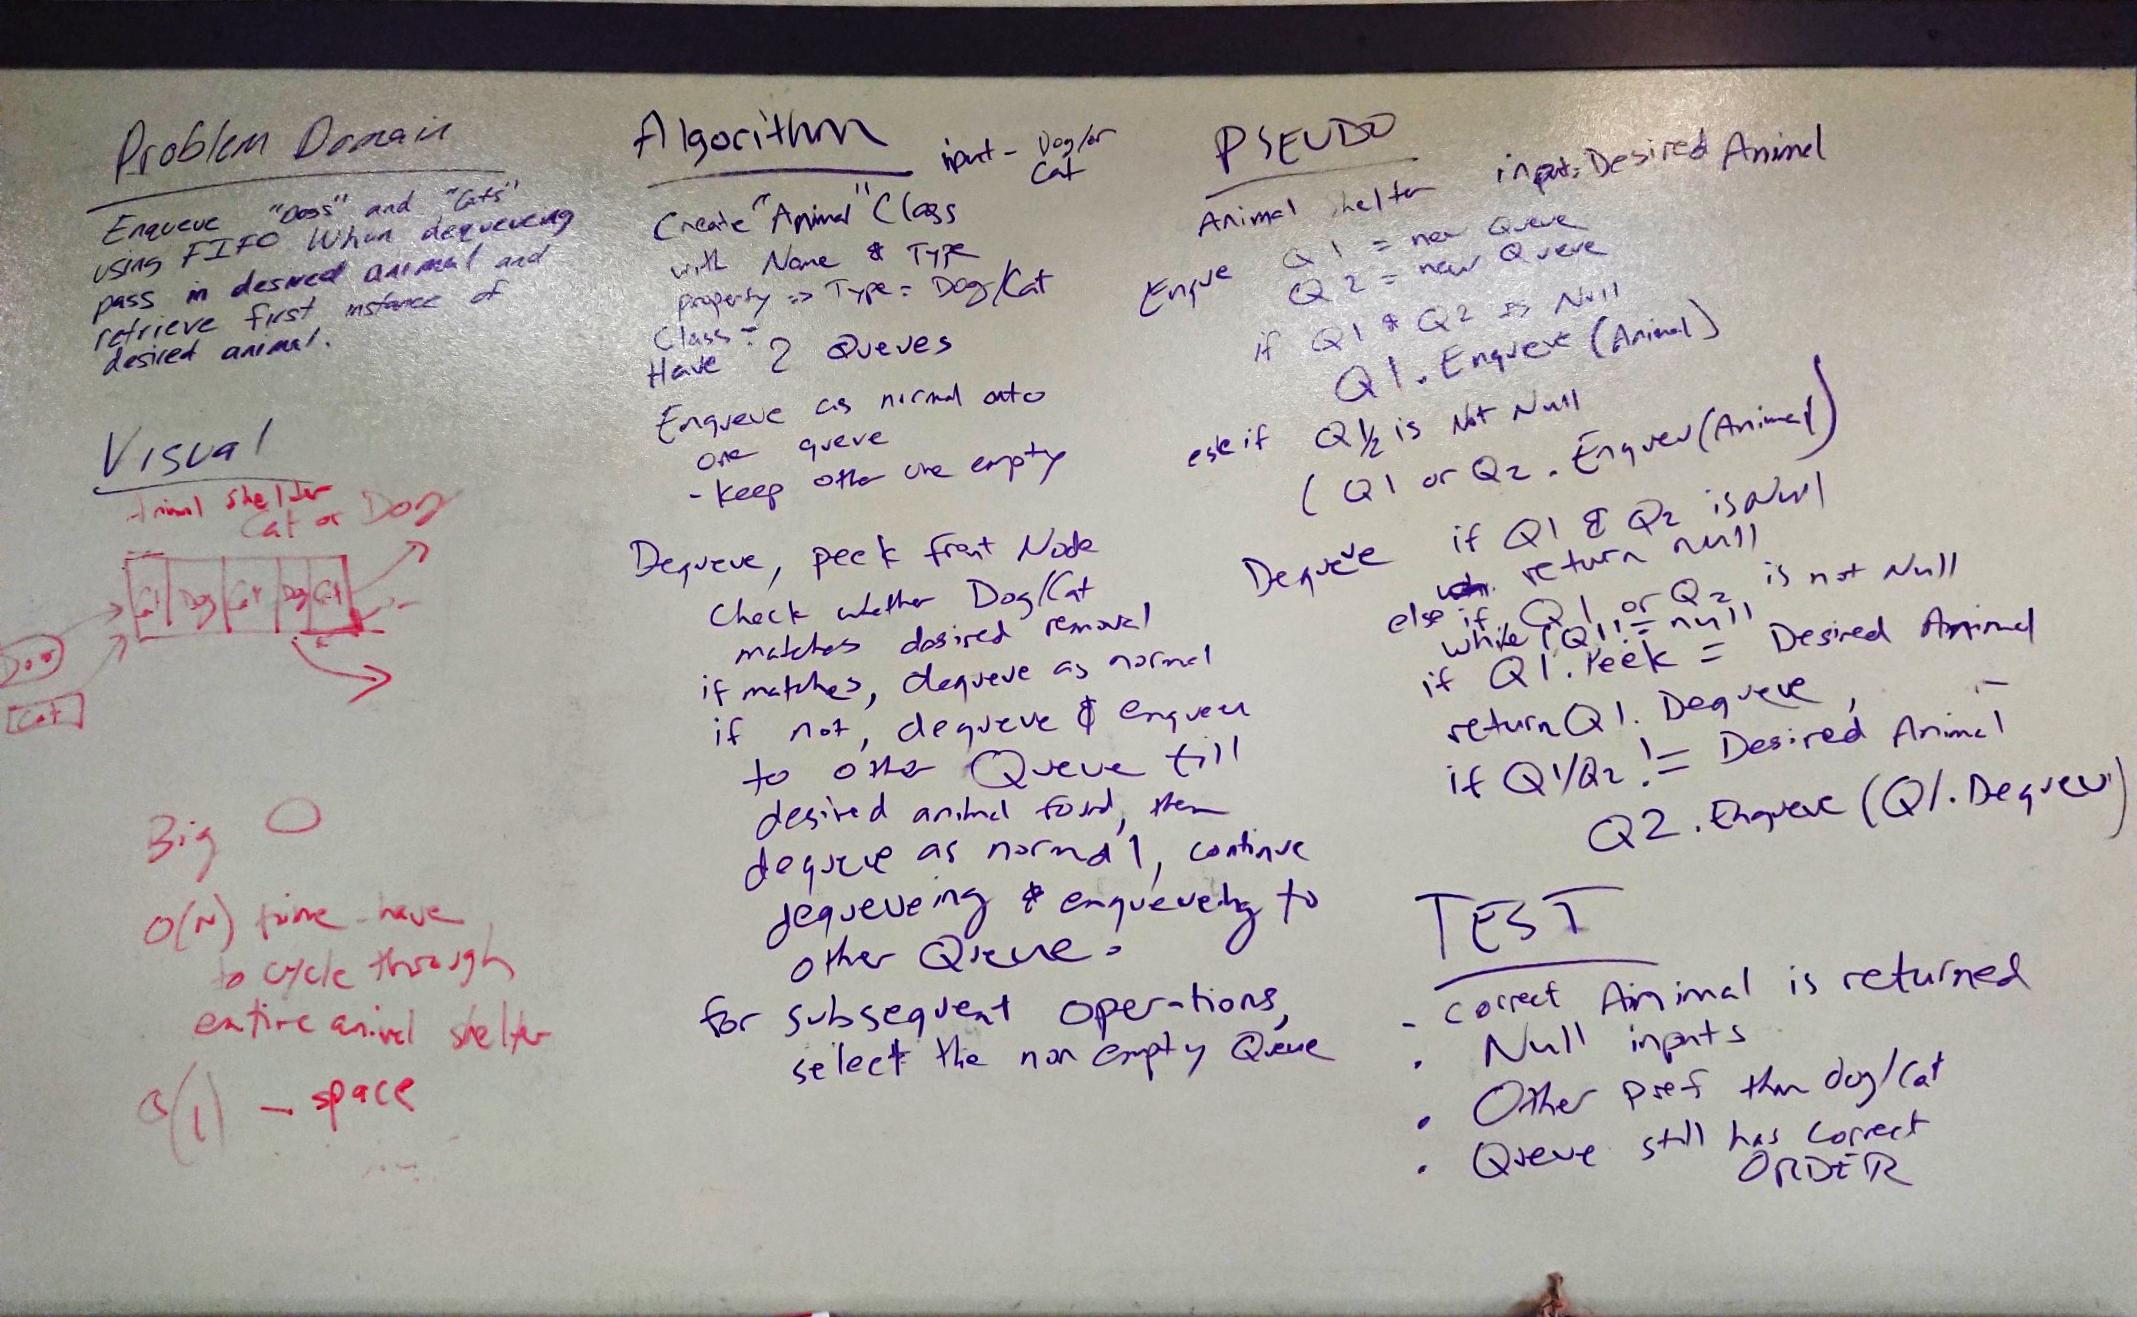 Problem Domain
Enqueue "Dogs" and "Cats"
using FIFO When dequeueing
pass in desired animal and
retrieve first instance of
desired animal.
Visual
Animal shelter
Cat or Dog
Cat Dog Cat Dog Cat
Dog
Cat
Big O
O(N) time - have
to cycle through
entire animal shelter
O(1) - space
Algorithm
input - Dog/or
Cat
Create "Animal" Class
with Name & Type
property => Type = Dog/Cat
Class:
Have 2 Queues
Enqueue as normal onto
one queue
- keep other one empty
Dequeue, peek front Node
Check whether Dog/Cat
matches desired removal
if matches, dequeue as normal
if not, dequeue & enqueu
to other Queue till
desired animal found, then
dequeue as normal, continue
dequeueing & enqueueing to
other Queue.
for subsequent operations,
select the non empty Queue
PSEUDO
Animal shelter input: Desired Animal
Enque Q1 = new Queue
Q2 = new Queue
if Q1 & Q2 is Null
Q1. Enqueue (Animal)
else if Q1/2 is Not Null
( Q1 or Q2 . Enqueu (Animal)
Dequeue if Q1 & Q2 is Null
return null
else if Q1 or Q2 is not Null
while (Q1 != null
if Q1. Peek = Desired Animal
return Q1. Dequeue,
if Q1/Q2 != Desired Animal
Q2. Enqueue (Q1. Dequeu)
TEST
- correct Animal is returned
. Null inputs
. Other pref than dog/cat
. Queue still has correct
ORDER